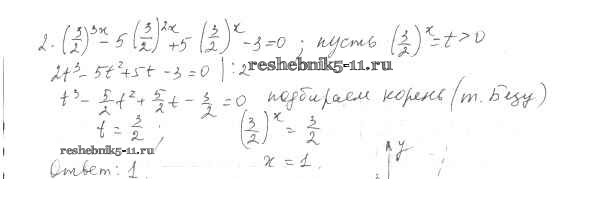 2. (3/2)^3x - 5(3/2)^2x + 5(3/2)^x - 3 = 0 ; пусть (3/2)^x = t > 0
2t³ - 5t² + 5t - 3 = 0 | : 2
reshebnik5-11.ru
t³ - 5/2 t² + 5/2 t - 3/2 = 0 подбираем корень (т. Безу)
t = 3/2 ; (3/2)^x = 3/2
reshebnik5-11.ru
x = 1.
Ответ: 1.
y